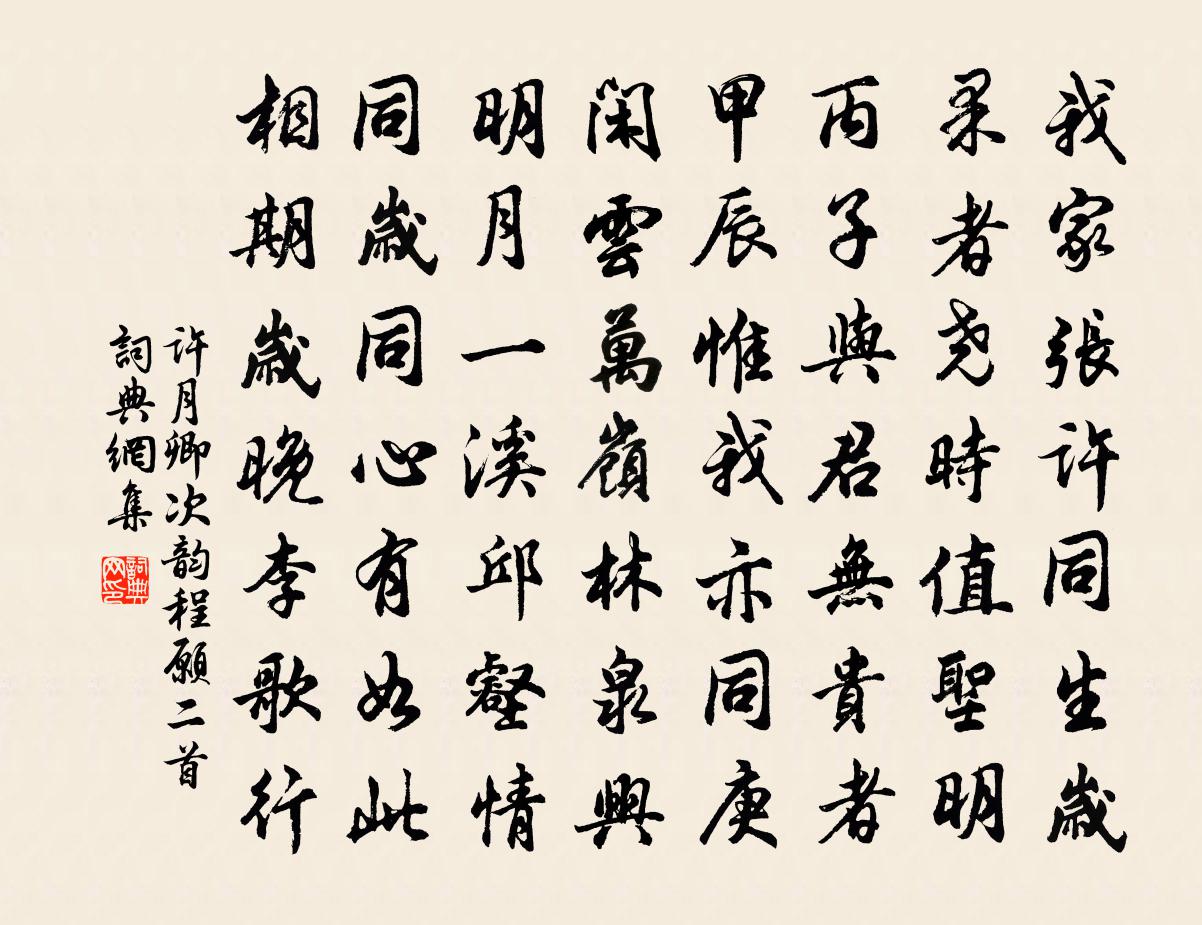 我家張許同生歲
柔者堯時值聖明
丙子與君無貴者
甲辰惟我亦同庚
閑雲萬嶺林泉興
明月一溪邱壑情
同歲同心有如此
相期歲晚李歌行
许月卿次韵程願二首
詞典網集
詞典网印